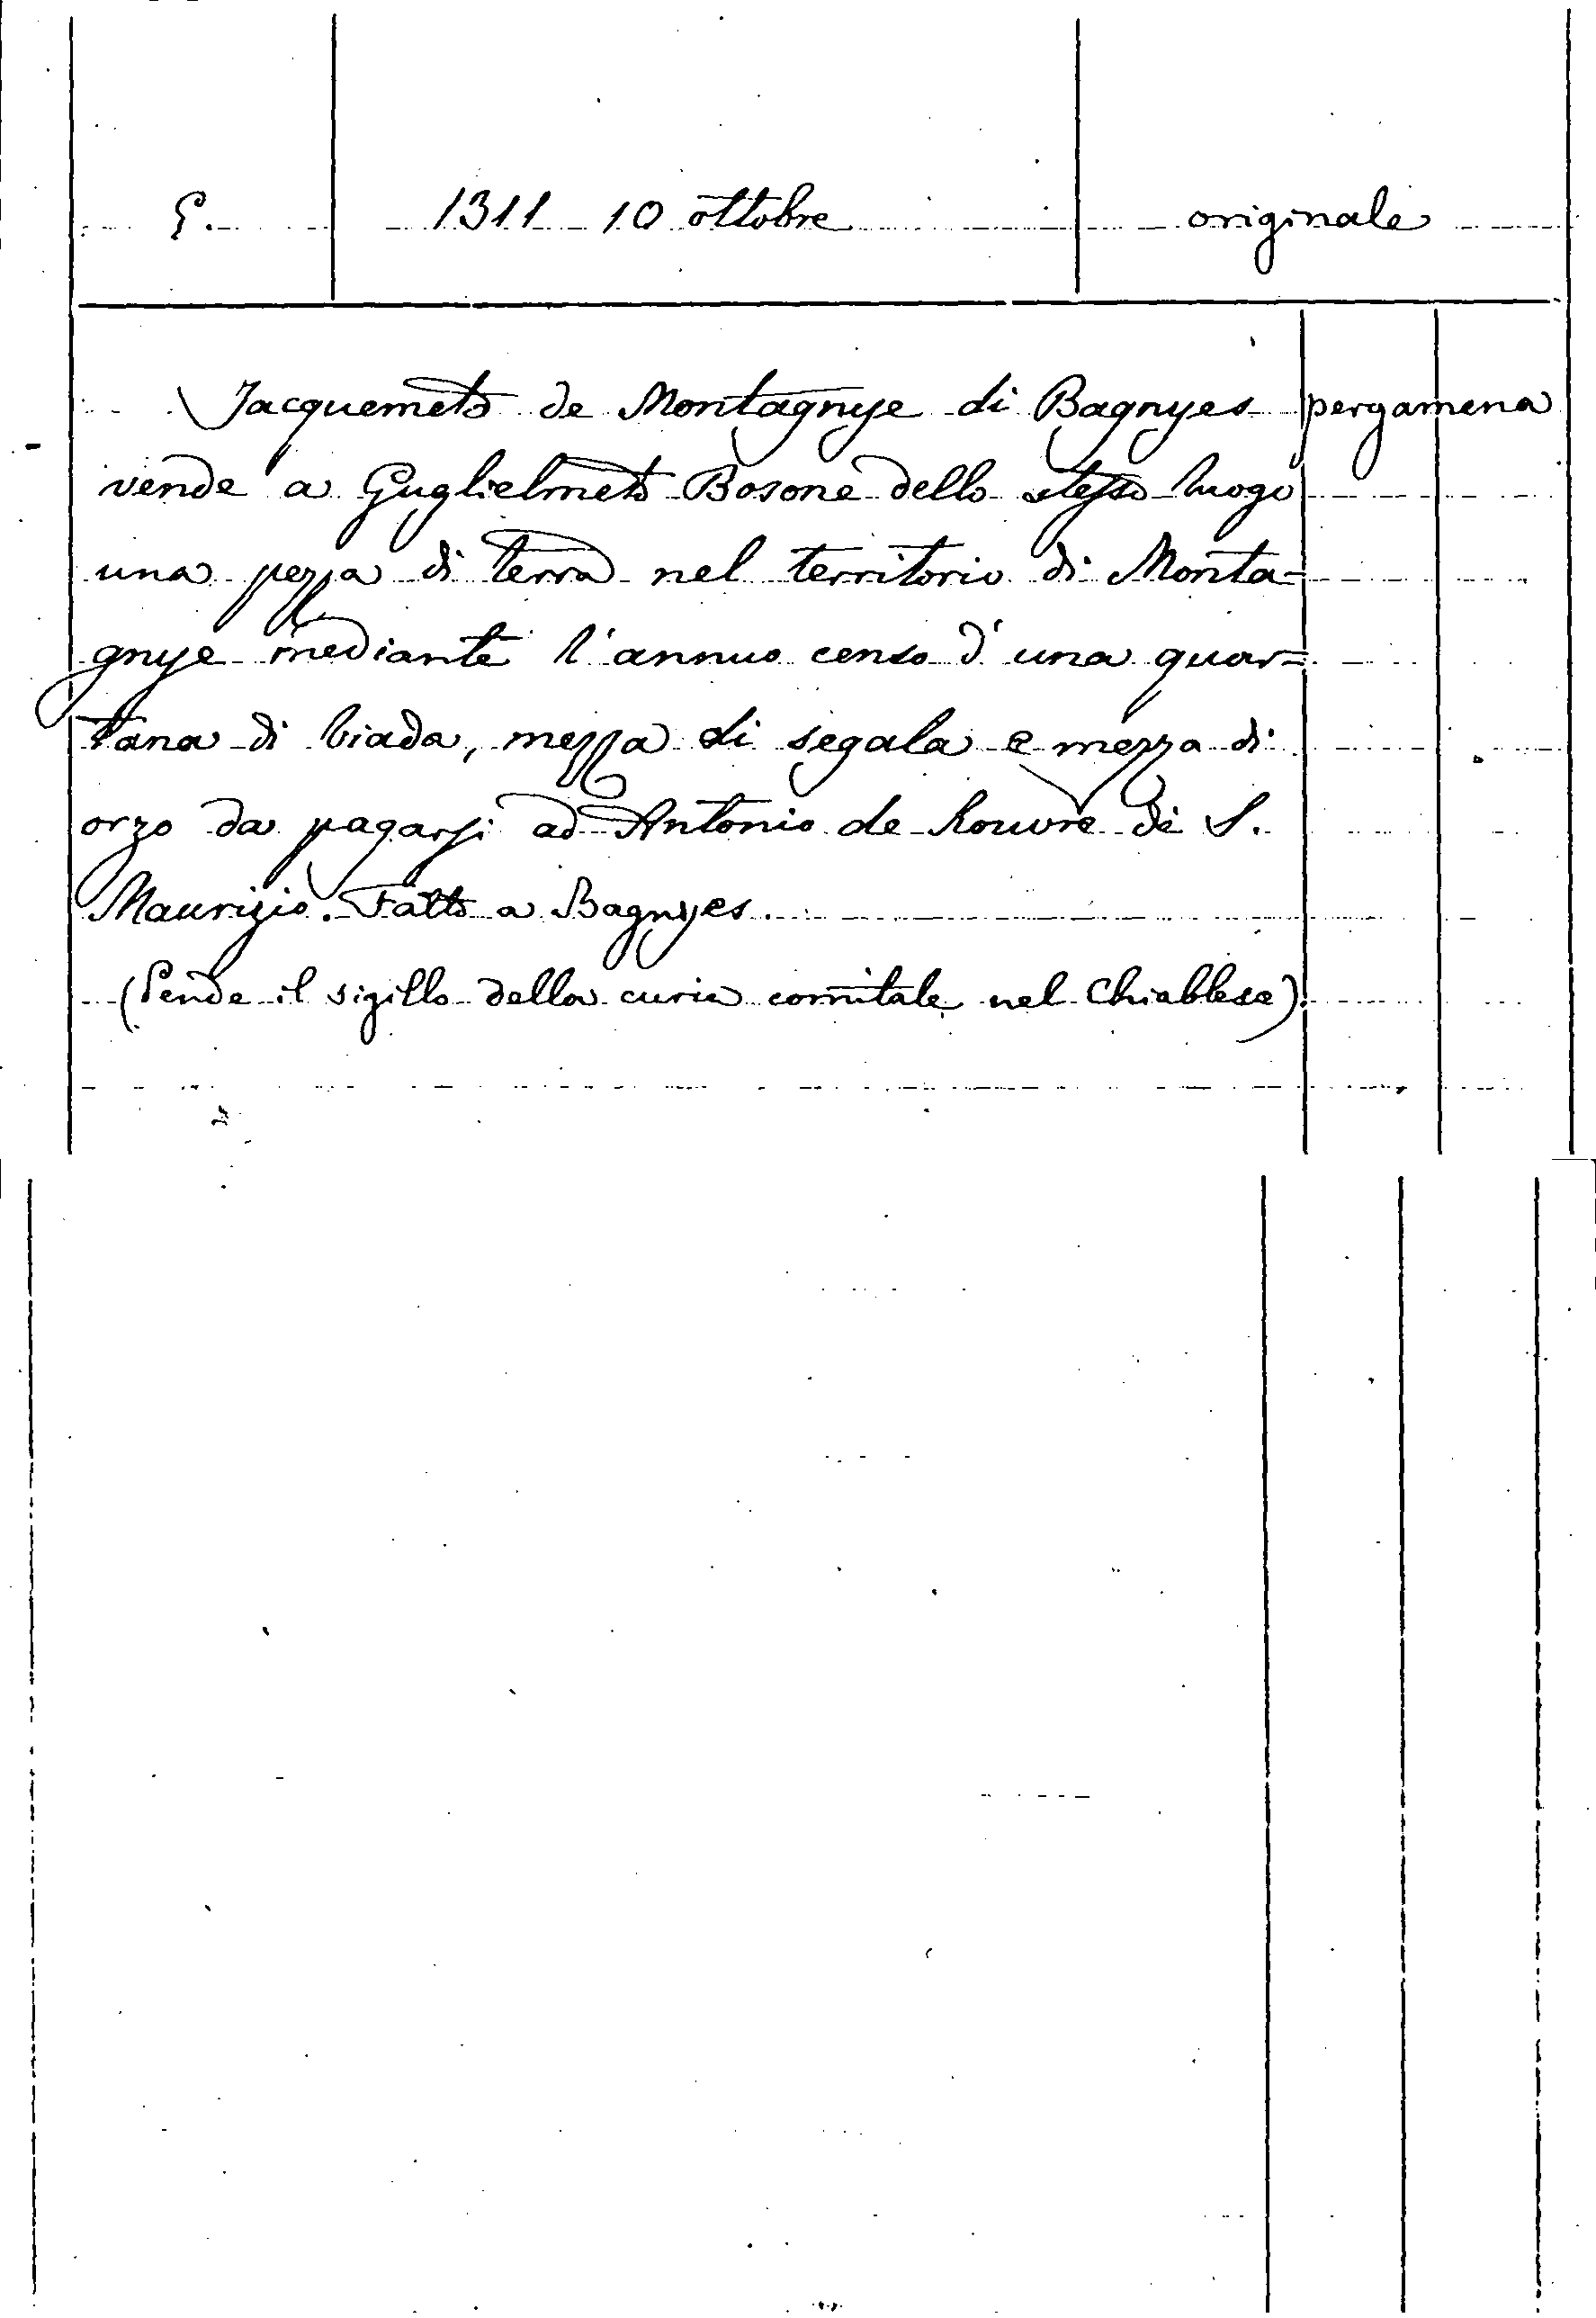 1311 10 ottobre originale
Jacquemeto de Montagnye di Bagnyes pergamena
vende a Guglielmeto Bosone dello stesso luogo
una pezza di terra nel territorio di Monta=
gnye mediante l'annuo censo d'una quar=
tana di biada, mezza di segala e mezza di
orzo da pagarsi ad Antonio de Rouvre di S.
Maurizio. Fatto a Bagnyes.
(Pende il sigillo della curia comitale nel Chiablese).